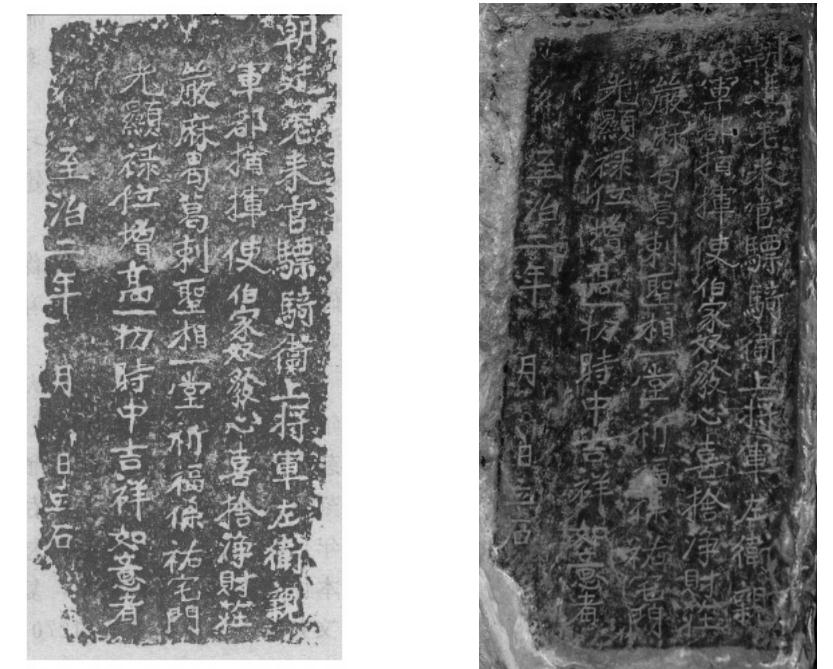 朝廷差来官驃騎衛上将軍左衛親
軍都指揮使伯家奴發心喜捨淨財莊
嚴麻曷葛剌聖相一堂祈福保祐宅門
光顯祿位增髙一切時中吉祥如意者
至治二年 月 日立石
朝廷差来官驃騎衛上将軍左衛親
軍都指揮使伯家奴發心喜捨淨財莊
嚴麻曷葛剌聖相一堂祈福保祐宅門
光顯祿位增髙一切時中吉祥如意者
至治二年 月 日立石